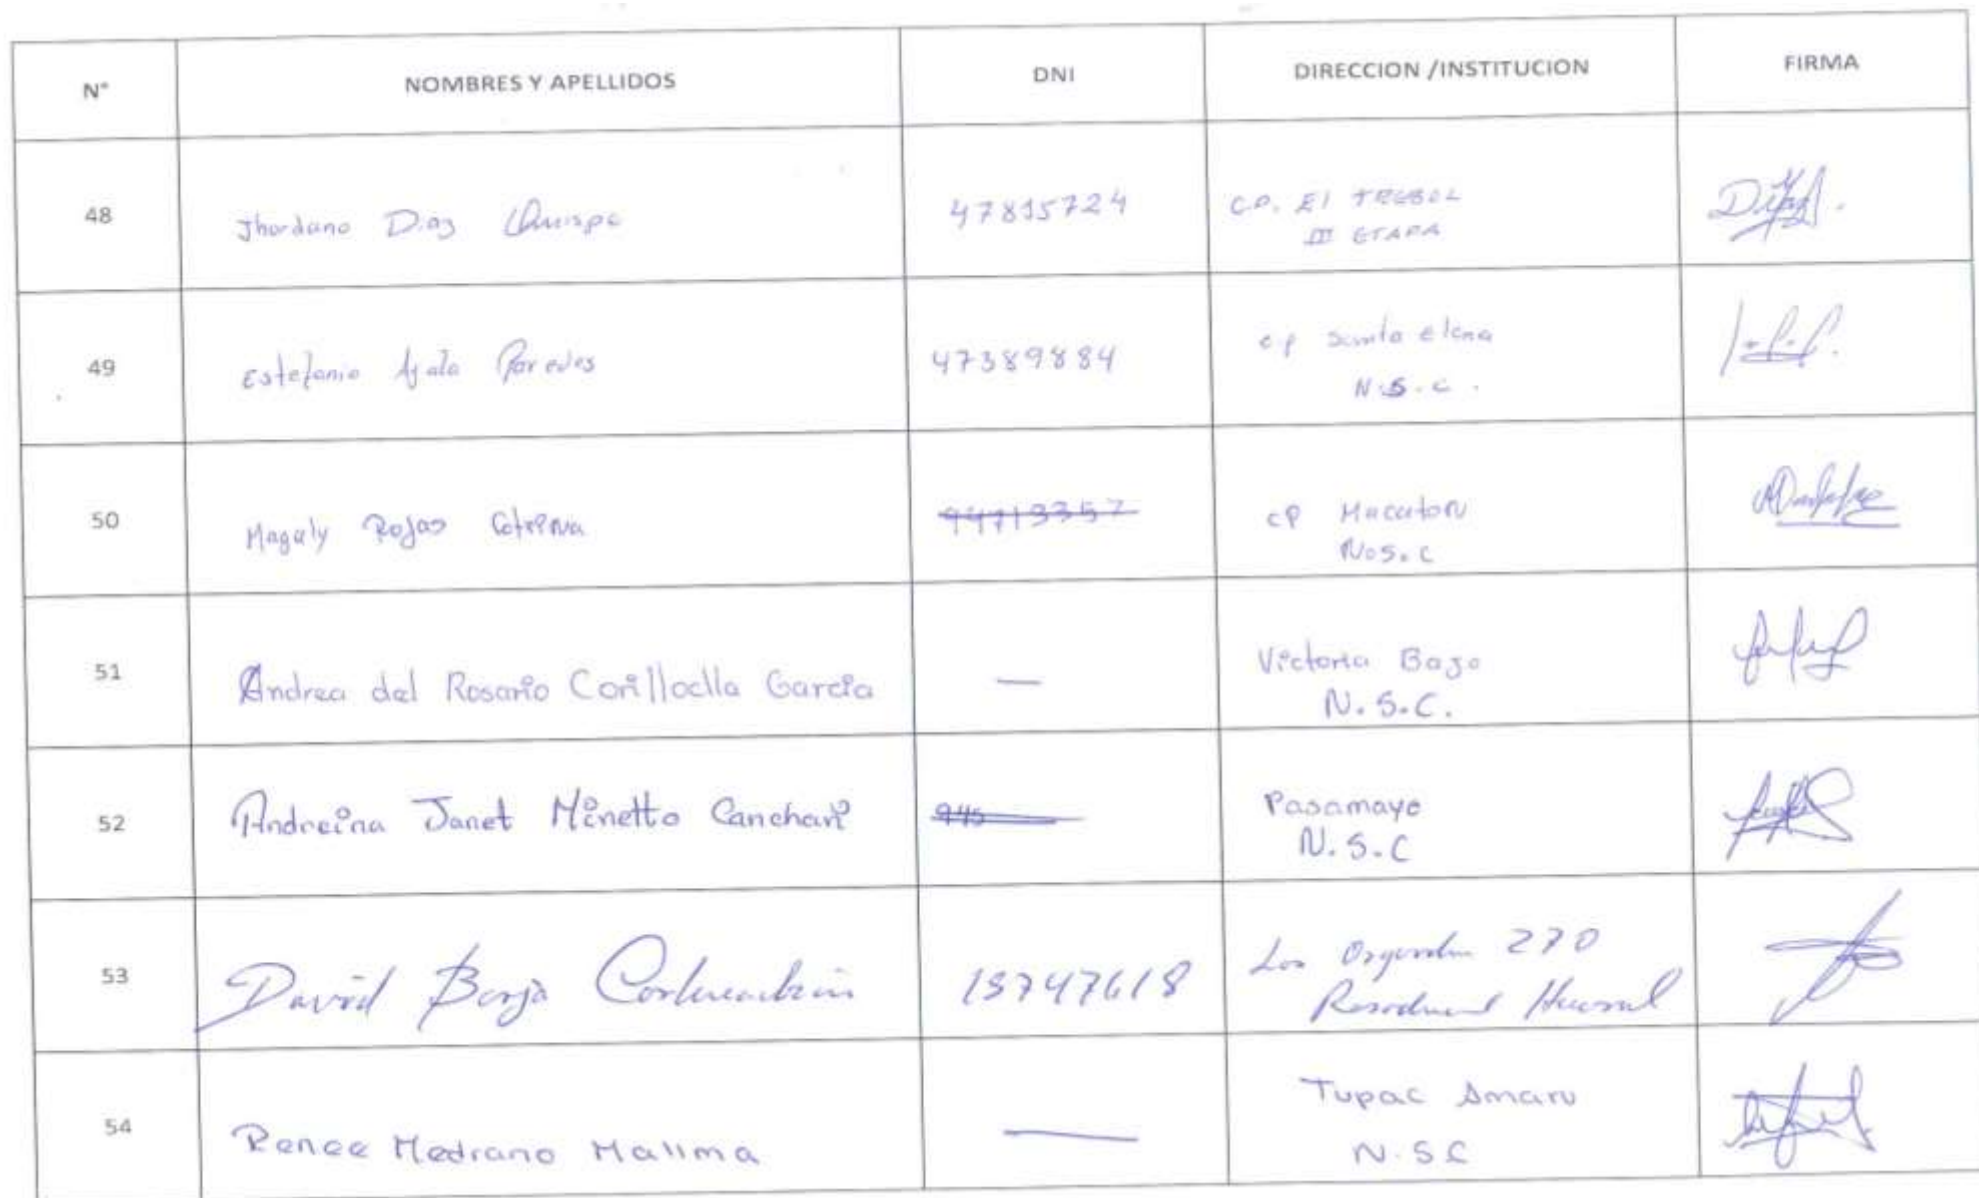 N° NOMBRES Y APELLIDOS DNI DIRECCION /INSTITUCION FIRMA
48 Jhordano Diaz Quispe 47815724 C.P. El TREBOL
III ETAPA
49 Estefanio Ayala Paredes 47389884 cp Santa elena
N.S.C.
50 Magaly Rojas 94713357 cp Macaton
NOS.C
51 Andrea del Rosario Corilloclla Garcia — Victoria Bajo
N.S.C.
52 Andreina Janet Minetto Canchari 945 Pasamayo
N.S.C
53 David Borja 15747618 Los 270
Huaral
54 Renee Medrano Mallma — Tupac Amaru
N.SC